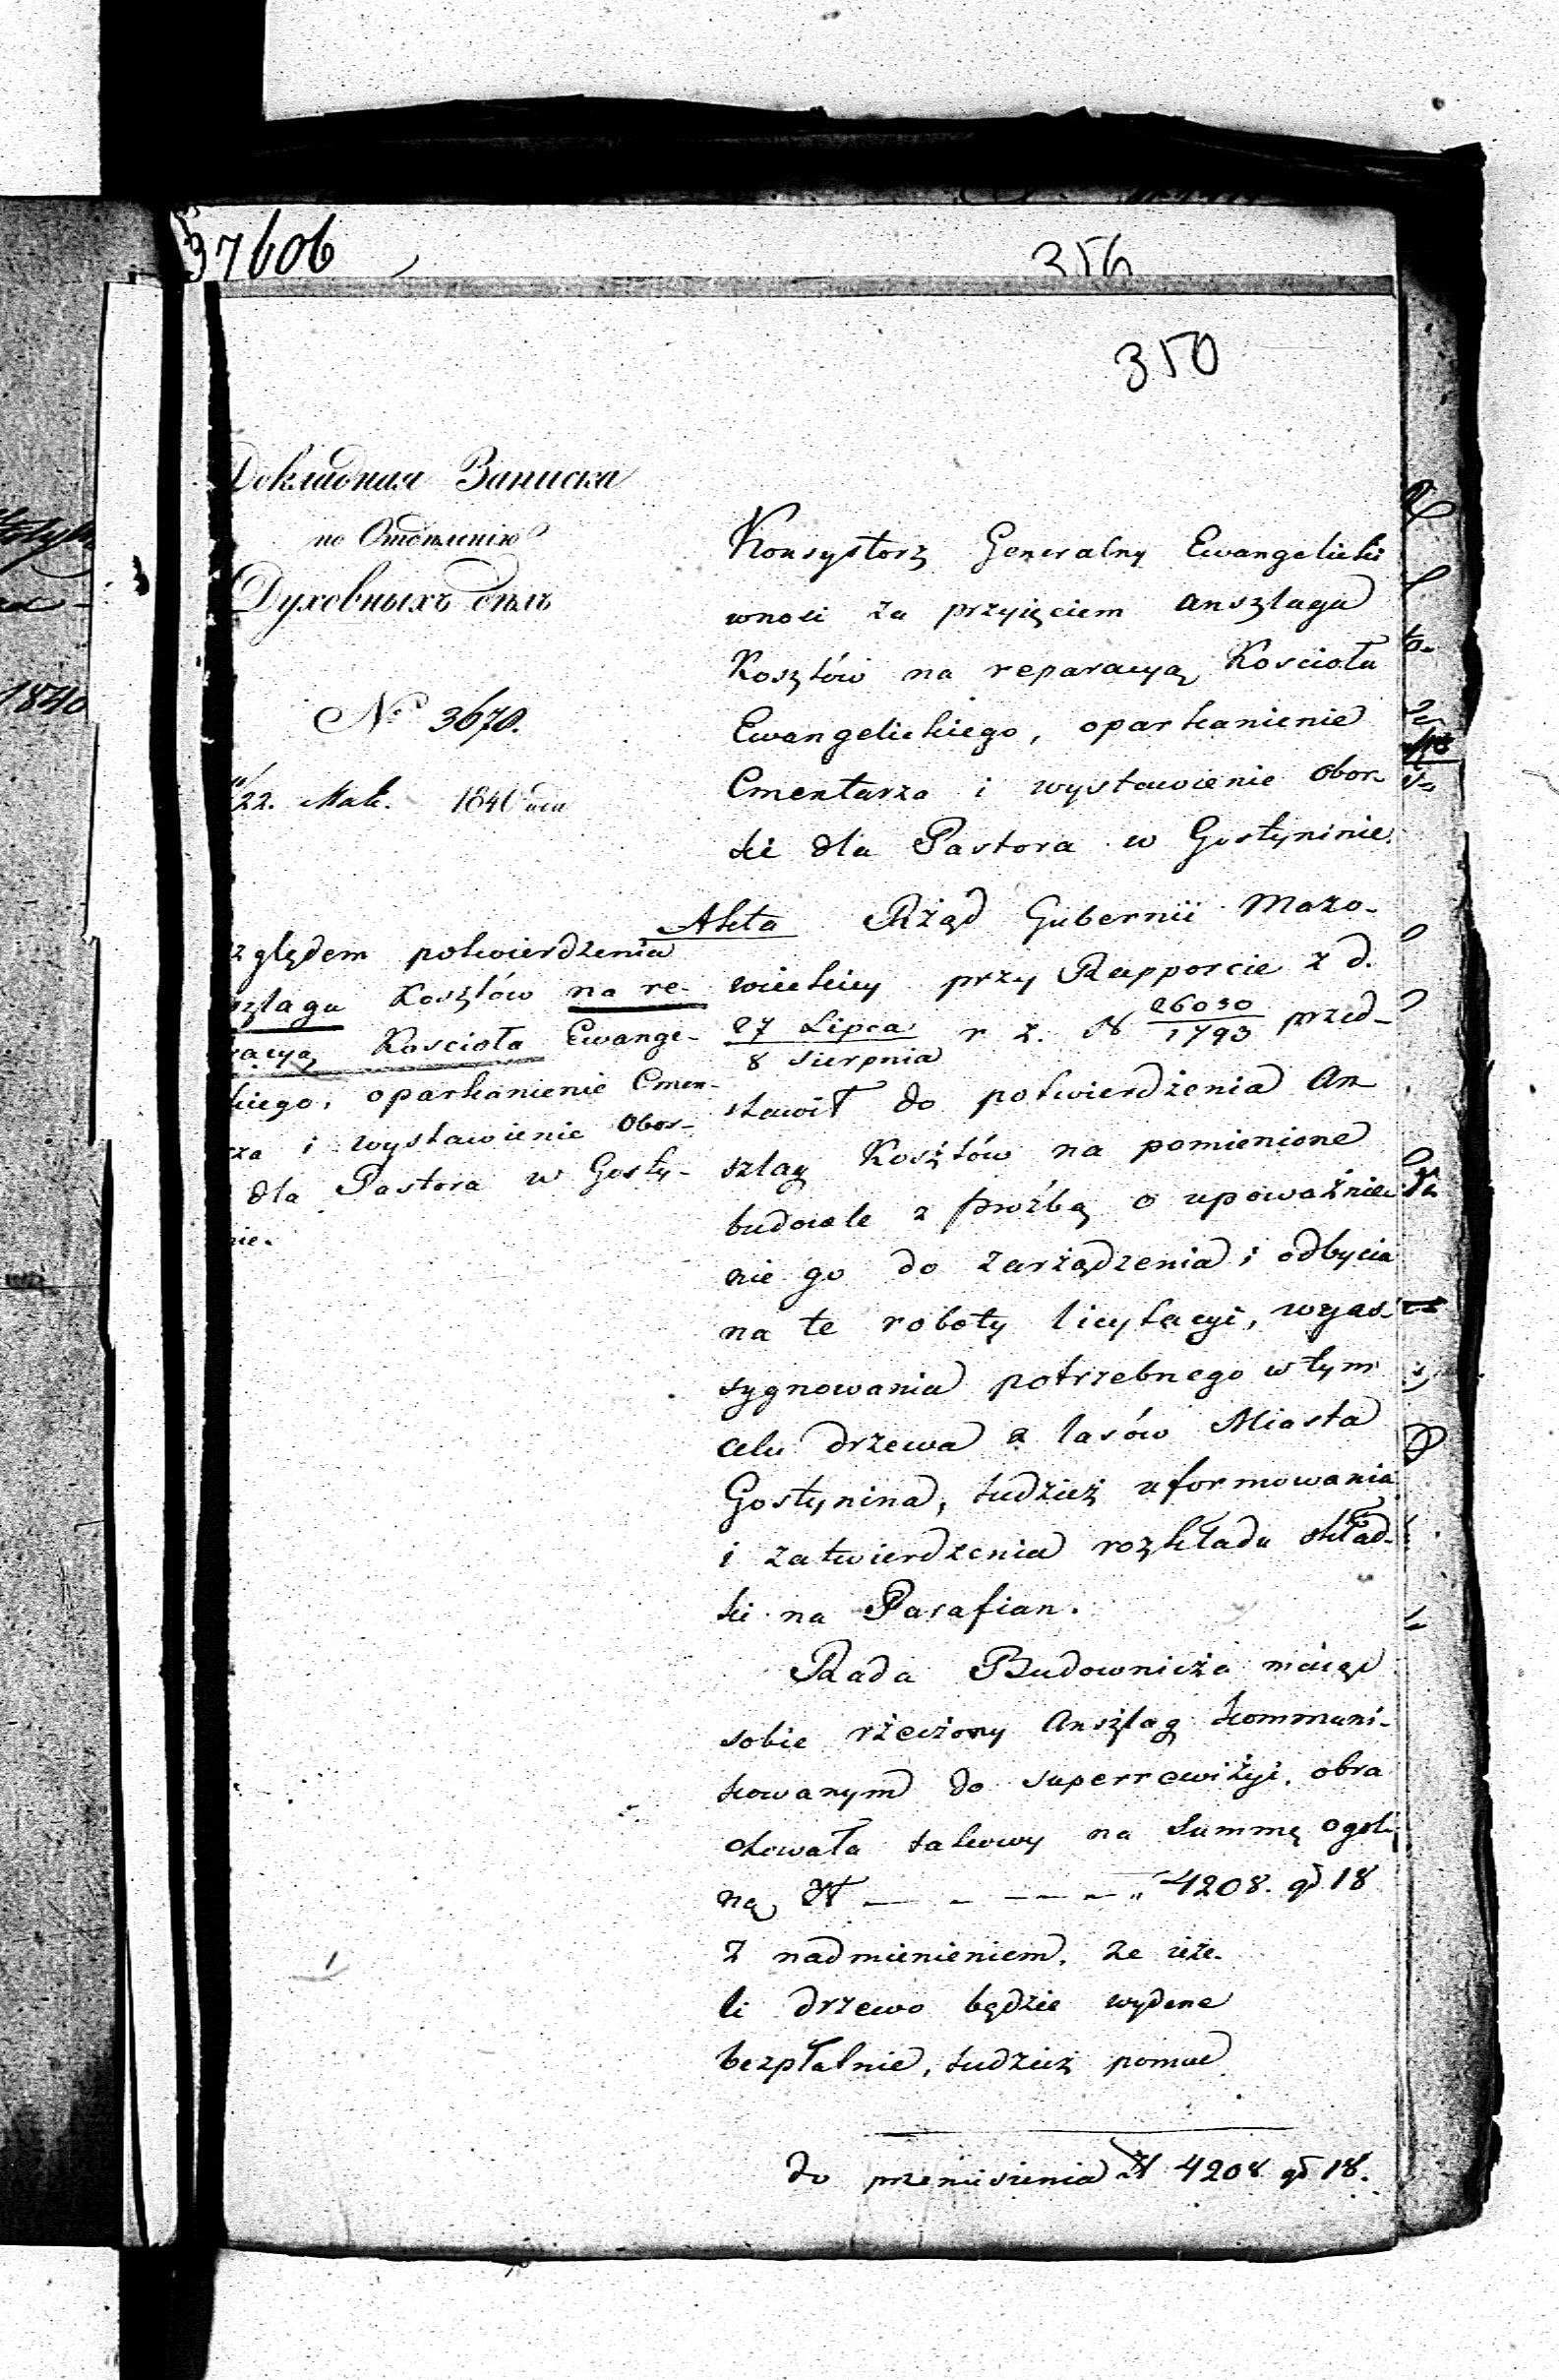 37606
356
350
Докладная Записка
по Отдѣленію
Духовныхъ дѣлъ
№ 3670.
10/22. Мая. 1840 года
względem potwierdzenia
szlagu Kosztów na re-
racyą Kościoła Ewange-
kiego, oparkanienie Cmen-
rza i wystawienie Obor-
dla Pastora w Gosty-
nie.
Konsystorz Generalny Ewangelicki
wnosi za przyięciem anszlagu
Kosztów na reparacyą Kościoła
Ewangelickiego, oparkanienie
Cmentarza i wystawienie Obor-
ki dla Pastora w Gostyninie.
Akta Rząd Gubernii Mazo-
wieckiey przy Rapporcie z d.
27 Lipca / 8 Sierpnia r z. № 26030 / 1793 przed-
stawił do potwierdzenia An-
szlag Kosztów na pomienione
budowle z proźbą o upoważnie
nie go do zarządzenia i odbycia
na te roboty licytacyi, wyas-
sygnowania potrzebnego w tym
celu drzewa z lasów Miasta
Gostynina, tudzież uformowania
i zatwierdzenia rozkładu skład-
ki na Parafian.
Rada Budownicza maiąc
sobie rzeczony Anszlag kommuni-
kowanym do superrewizyi, obra
chowała takowy na Summę ogól
ną Zł — - — — — „ 4208. gr 18
z nadmienieniem, że ieże-
li drzewo będzie wydane
bezpłatnie, tudzież pomoc
do przeniesienia Zł 4208 gr 18.